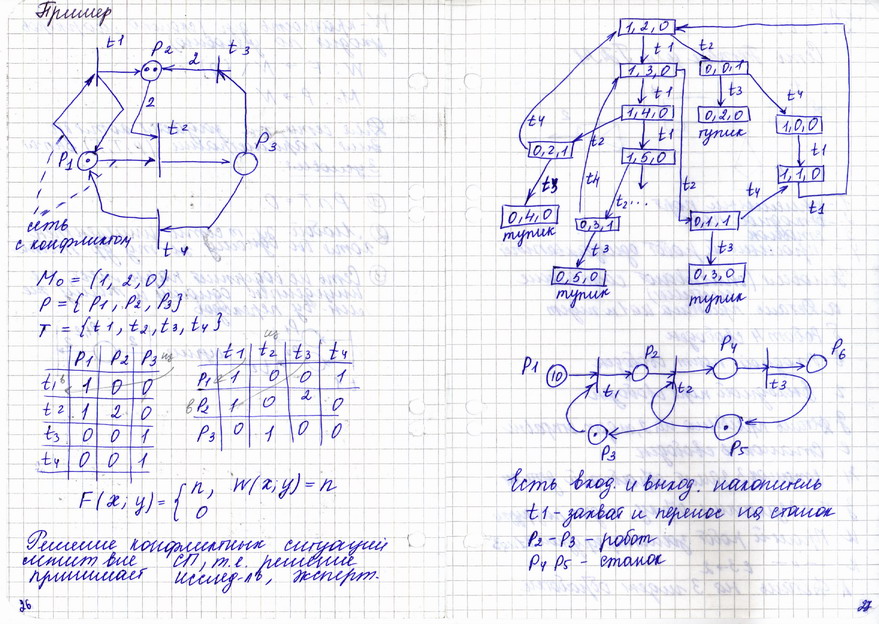 Пример
t1
P2
2
t3
2
t2
P1
P3
сеть
с конфликтом
t4
M0 = (1, 2, 0)
P = {P1, P2, P3}
T = {t1, t2, t3, t4}
P1 P2 P3 из
t1 в 1 0 0
t2 1 2 0
t3 0 0 1
t4 0 0 1
из
t1 t2 t3 t4
P1 1 0 0 1
в P2 1 0 2 0
P3 0 1 0 0
F(x; y) = { n, W(x; y) = n
0
Решение конфликтных ситуаций
лежит вне СП, т.е. решение
принимает исслед-ль, эксперт.
26
1, 2, 0
t1 t2
1, 3, 0
0, 0, 1
t1 t3 t4
1, 4, 0
0, 2, 0
тупик
1, 0, 0
t4
t2
t1
t1
0, 2, 1
1, 5, 0
1, 1, 0
t3
t4
t2...
t2
t4
t1
0, 4, 0
тупик
0, 3, 1
0, 1, 1
t3
t3
0, 5, 0
тупик
0, 3, 0
тупик
P1
10
P2
P4
P6
t1
t2
t3
P3
P5
Есть вход. и выход. накопитель
t1 - захват и перенос на станок
P2 - P3 - робот
P4 P5 - станок
27